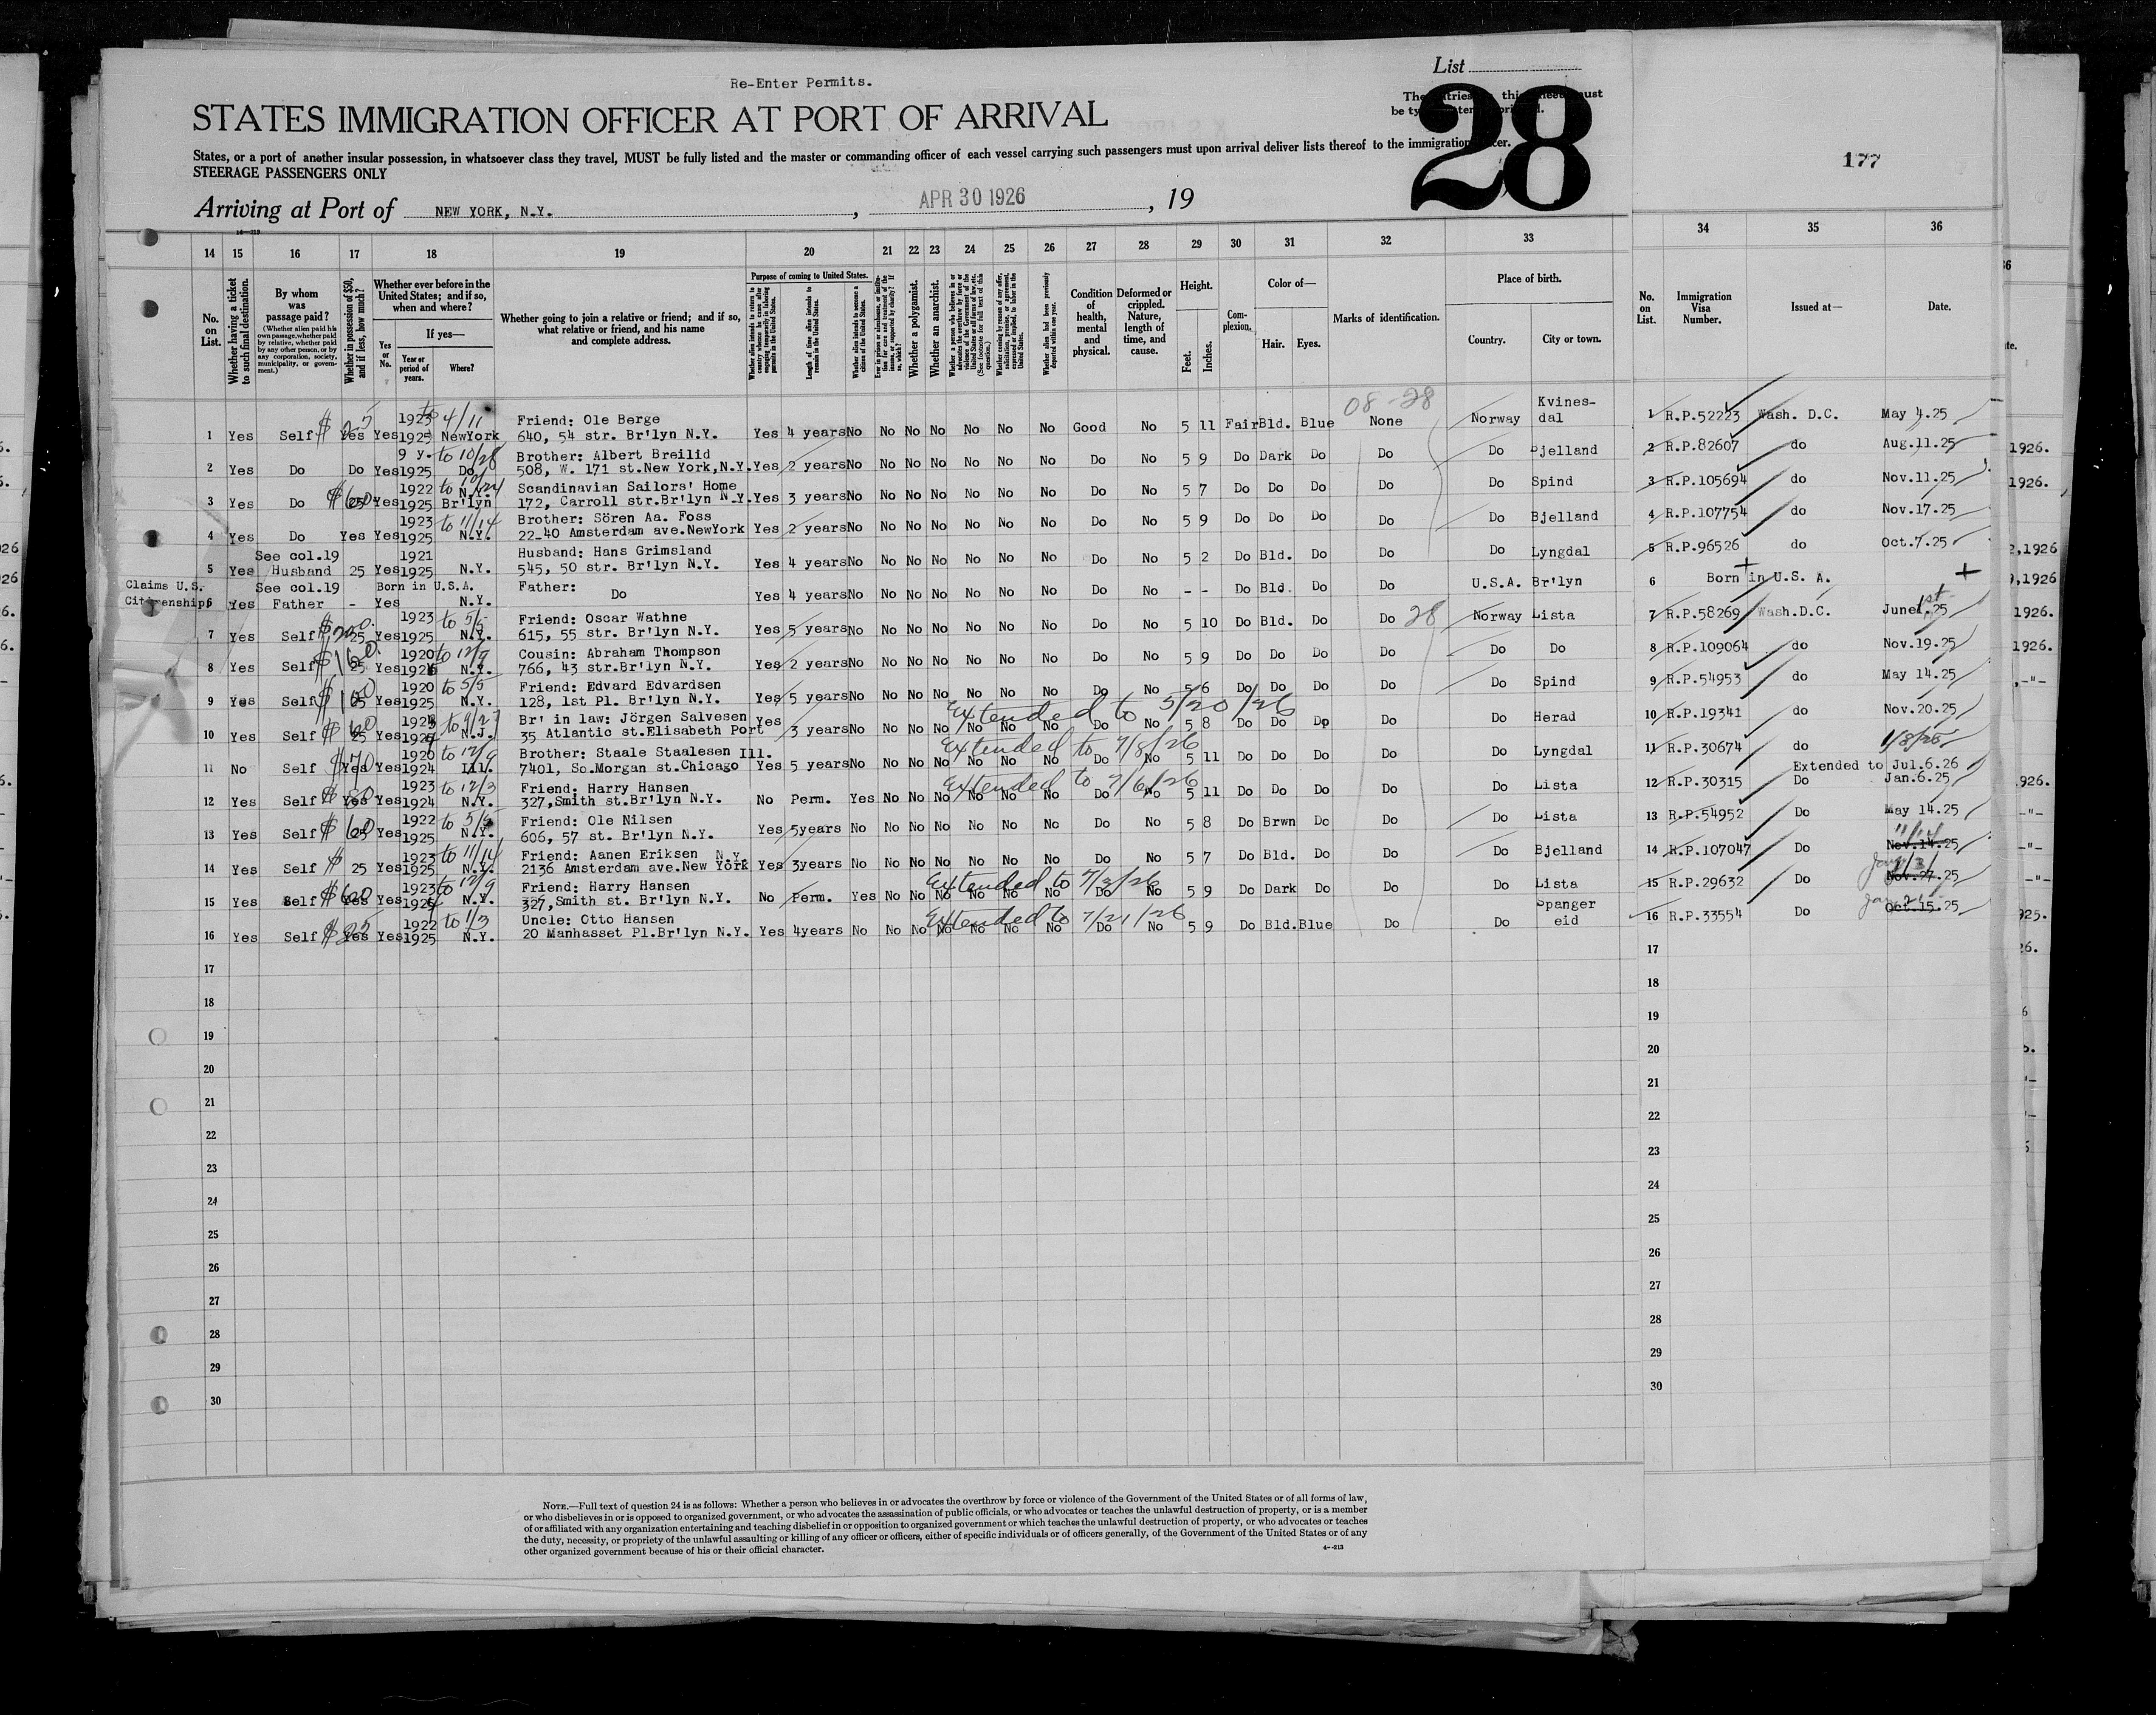 Re-Enter Permits.
List
28
177
STATES IMMIGRATION OFFICER AT PORT OF ARRIVAL
States, or a port of another insular possession, in whatsoever class they travel, MUST be fully listed and the master or commanding officer of each vessel carrying such passengers must upon arrival deliver lists thereof to the immigration
STEERAGE PASSENGERS ONLY
Arriving at Port of NEW YORK, N.Y. , APR 30 1926 , 19
14 15 16 17 18 19 20 21 22 23 24 25 26 27 28 29 30 31 32 33 34 35 36
No. on List.
Whether having a ticket to such final destination.
By whom was passage paid?
(Whether alien paid his own passage, whether paid by relative, whether paid by any other person, or by any corporation, society, municipality, or government.)
Whether in possession of $50, and if less, how much?
Whether ever before in the United States; and if so, when and where?
Yes or No.
If yes—
Year or period of years.
Where?
Whether going to join a relative or friend; and if so, what relative or friend, and his name and complete address.
Purpose of coming to United States.
Length of time alien intends to remain in the United States.
Whether alien intends to become a citizen of the United States.
Whether a polygamist.
Whether an anarchist.
Condition of health, mental and physical.
Deformed or crippled. Nature, length of time, and cause.
Height.
Feet.
Inches.
Complexion.
Color of—
Hair.
Eyes.
Marks of identification.
Place of birth.
Country.
City or town.
No. on List.
Immigration Visa Number.
Issued at—
Date.
08-28
1 Yes Self $25 Yes Yes 1923 to 4/11 1925 NewYork Friend: Ole Berge 640, 54 str. Br'lyn N.Y. Yes 4 years No No No No No No No Good No 5 11 Fair Bld. Blue None Norway Kvines-dal 1 R.P.52223 Wash. D.C. May 4.25
2 Yes Do Do Yes 9 y. to 10/28 1925 Do Brother: Albert Breilid 508, W. 171 st.New York,N.Y. Yes 2 years No No No No No No No Do No 5 9 Do Dark Do Do Do Bjelland 2 R.P.82607 do Aug.11.25
3 Yes Do $60 Yes 1922 to 1925 N.Y. Br'lyn Scandinavian Sailors' Home 172, Carroll str.Br'lyn N.Y. Yes 3 years No No No No No No No Do No 5 7 Do Do Do Do Do Spind 3 R.P.105694 do Nov.11.25
4 Yes Do Yes Yes 1923 to 11/14 1925 N.Y. Brother: Sören Aa. Foss 22-40 Amsterdam ave.NewYork Yes 2 years No No No No No No No Do No 5 9 Do Do Do Do Do Bjelland 4 R.P.107754 do Nov.17.25
5 Yes See col.19 Husband 25 Yes 1921 1925 N.Y. Husband: Hans Grimsland 545, 50 str. Br'lyn N.Y. Yes 4 years No No No No No No No Do No 5 2 Do Bld. Do Do Do Lyngdal 5 R.P.96526 do Oct.7.25
Claims U.S. Citizenship
6 Yes See col.19 Father - Yes Born in U.S.A. N.Y. Father: Do Yes 4 years No No No No No No No Do No - - Do Bld. Do Do U.S.A. Br'lyn 6 Born in U.S. A.
7 Yes Self 25 Yes 1923 to 5/5 1925 N.Y. Friend: Oscar Wathne 615, 55 str. Br'lyn N.Y. Yes 5 years No No No No No No No Do No 5 10 Do Bld. Do Do 28 Norway Lista 7 R.P.58269 Wash.D.C. June 1st.25
8 Yes Self $160. 25 Yes 1920 to 12/9 N.Y. Cousin: Abraham Thompson 766, 43 str.Br'lyn N.Y. Yes 2 years No No No No No No No Do No 5 9 Do Do Do Do Do Do 8 R.P.109064 do Nov.19.25
9 Yes Self $ Yes 1920 to 5/5 1925 N.Y. Friend: Edvard Edvardsen 128, 1st Pl. Br'lyn N.Y. Yes 5 years No No No No No No No Do No 5 6 Do Do Do Do Do Spind 9 R.P.54953 do May 14.25
Extended to 5/20/26
10 Yes Self $60 25 Yes N.J. Br' in law: Jörgen Salvesen 35 Atlantic st.Elisabeth Port Yes 3 years No No No No No No No Do No 5 8 Do Do Do Do Do Herad 10 R.P.19341 do Nov.20.25
Extended to 7/8/26
11 No Self $70 Yes Yes 1920 to 12/9 1924 Ill. Brother: Staale Staalesen Ill. 7401, So.Morgan st.Chicago Yes 5 years No No No No No No No Do No 5 11 Do Do Do Do Do Lyngdal 11 R.P.30674 do
Extended to 7/6/26
12 Yes Self Yes Yes 1923 to 12/3 1924 N.Y. Friend: Harry Hansen 327,Smith st.Br'lyn N.Y. No Perm. Yes No No No No No No Do No 5 11 Do Do Do Do Do Lista 12 R.P.30315 Extended to Jul.6.26 Do Jan.6.25
13 Yes Self $60 25 Yes 1922 1925 N.Y. Friend: Ole Nilsen 606, 57 st. Br'lyn N.Y. Yes 5years No No No No No No No Do No 5 8 Do Brwn Do Do Do Lista 13 R.P.54952 Do May 14.25
14 Yes Self $ 25 Yes 1923 to 11/14 1925 N.Y. Friend: Aanen Eriksen N.Y. 2136 Amsterdam ave.New York Yes 3years No No No No No No No Do No 5 7 Do Bld. Do Do Do Bjelland 14 R.P.107047 Do 11/14 Nov.14.25
Extended to 7/3/26
15 Yes Self $60 Yes Yes 1923 to 12/9 N.Y. Friend: Harry Hansen 327,Smith st. Br'lyn N.Y. No Perm. Yes No No No No No No Do No 5 9 Do Dark Do Do Do Lista 15 R.P.29632 Do
Extended to 7/21/26
16 Yes Self $25 Yes Yes 1922 to 1/3 1925 N.Y. Uncle: Otto Hansen 20 Manhasset Pl.Br'lyn N.Y. Yes 4years No No No No No No No Do No 5 9 Do Bld. Blue Do Do Spanger eid 16 R.P.33554 Do Oct.15.25
17 17
18 18
19 19
20 20
21 21
22 22
23 23
24 24
25 25
26 26
27 27
28 28
29 29
30 30
NOTE.—Full text of question 24 is as follows: Whether a person who believes in or advocates the overthrow by force or violence of the Government of the United States or of all forms of law,
or who disbelieves in or is opposed to organized government, or who advocates the assassination of public officials, or who advocates or teaches the unlawful destruction of property, or is a member
of or affiliated with any organization entertaining and teaching disbelief in or opposition to organized government or which teaches the unlawful destruction of property, or who advocates or teaches
the duty, necessity, or propriety of the unlawful assaulting or killing of any officer or officers, either of specific individuals or of officers generally, of the Government of the United States or of any
other organized government because of his or their official character.